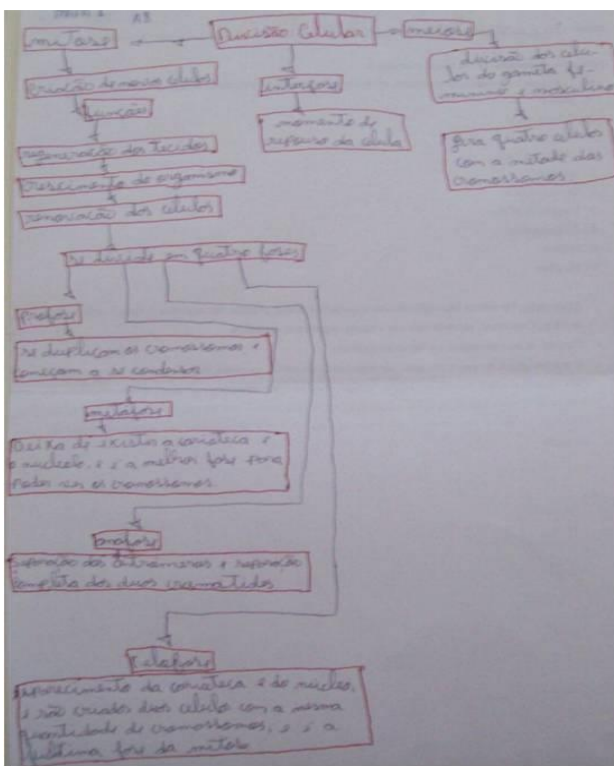 A8
mitose
Divisão Celular
meiose
criação de novas celulas
função
regeneração dos tecidos
crescimento do organismo
renovação das celulas
interfase
momento de
repouso da celula
divisão das celu-
las do gameta fe-
minino e masculino
gera quatro celulas
com a metade dos
cromossomos
se divide em quatro fases
profase
se duplicam os cromossomos e
começam a se condensar
metafase
Deixa de existir a carioteca e
o nucleolo, e é a melhor fase para
poder ver os cromossomos
anafase
separação dos centromeros e separação
completa das duas cromatides
telofase
aparecimento da carioteca e do nucleo,
e são criadas duas celulas com a mesma
quantidade de cromossomos, e é a
ultima fase da mitose